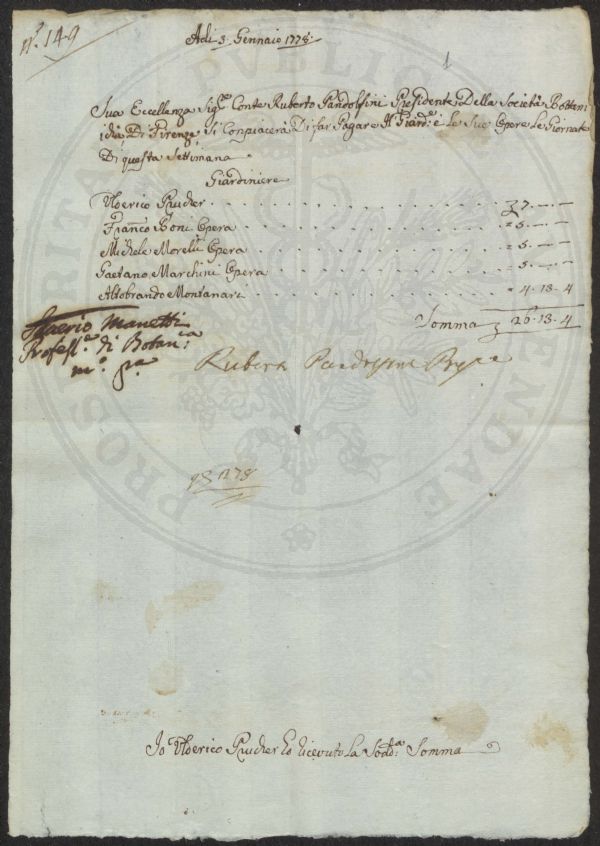 n.° 149
Adi 3. Gennaio 1778:
1
Sua Eccellenza Sig.e Conte Ruberto Pandolfini Presidente Della Società Bottani
ca Di Firenze Si Conpiacera Di far Pagare Al Giard:e e Le Sue Opere Le Giornate
Di questa Setimana
Giardiniere
Ulderico Prucker . . . 7. — —
Franc.o Boni Opera . . . = 5. — —
Michele Morelli Opera . . . = 5. — —
Gaetano Marchini Opera . . . = 5. — —
Altobrando Montanari . . . = 4. 13. 4
Somma 26. 13. 4
Saverio Manetti
Profess.e di Botan:ca
m.o p.a
Ruberto Pandolfini
Io Ulderico Prucker ho ricevuto La Sod.a Somma
PROSPERITATI PVBLICAE AVGENDAE